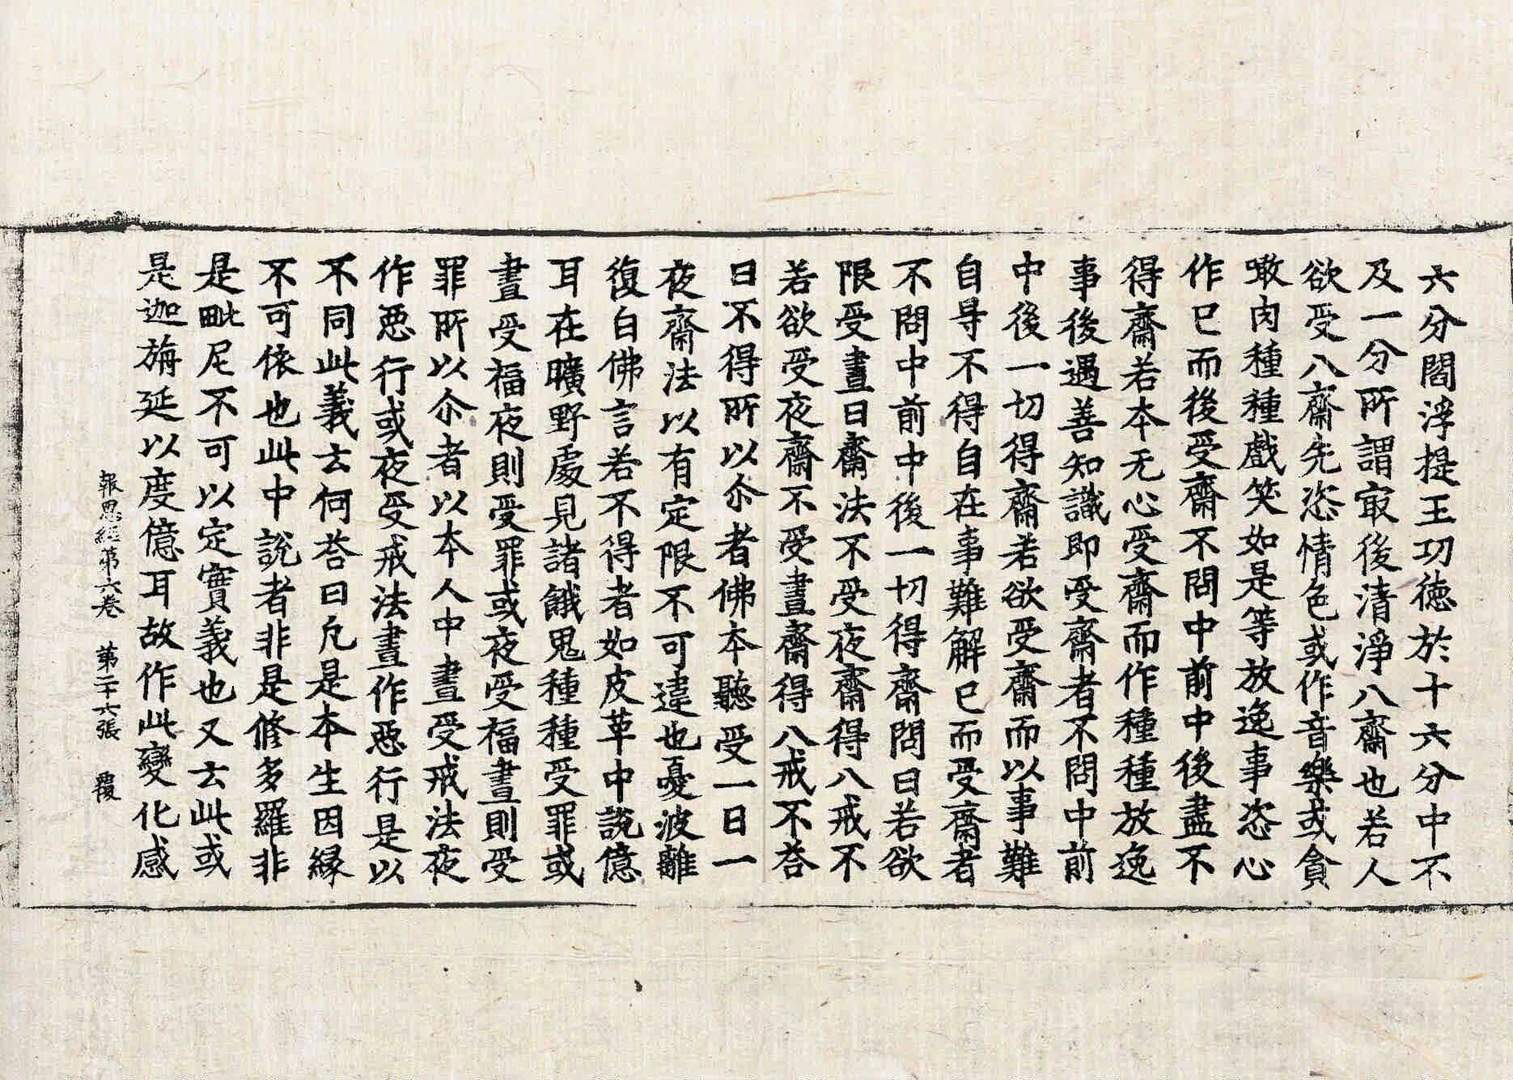 六分閻浮提王功徳於十六分中不
及一分所謂㝡後清淨八齋也若人
欲受八齋先恣情色或作音樂或貪
噉肉種種戲笑如是等放逸事恣心
作已而後受齋不問中前中後盡不
得齋若本无心受齋而作種種放逸
事後遇善知識即受齋者不問中前
中後一切得齋若欲受齋而以事難
自㝵不得自在事難解已而受齋者
不問中前中後一切得齋問曰若欲
限受晝日齋法不受夜齋得八戒不
若欲受夜齋不受晝齋得八戒不荅
曰不得所以尒者佛本聽受一日一
夜齋法以有定限不可違也憂波離
復白佛言若不得者如皮革中說億
耳在曠野處見諸餓鬼種種受罪或
晝受福夜則受罪或夜受福晝則受
罪所以尒者以本人中晝受戒法夜
作惡行或夜受戒法晝作惡行是以
不同此義云何荅曰凡是本生因縁
不可依也此中說者非是修多羅非
是毗尼不可以定實義也又云此或
是迦旃延以度億耳故作此變化感
報恩經第六卷 第二十六張 覆